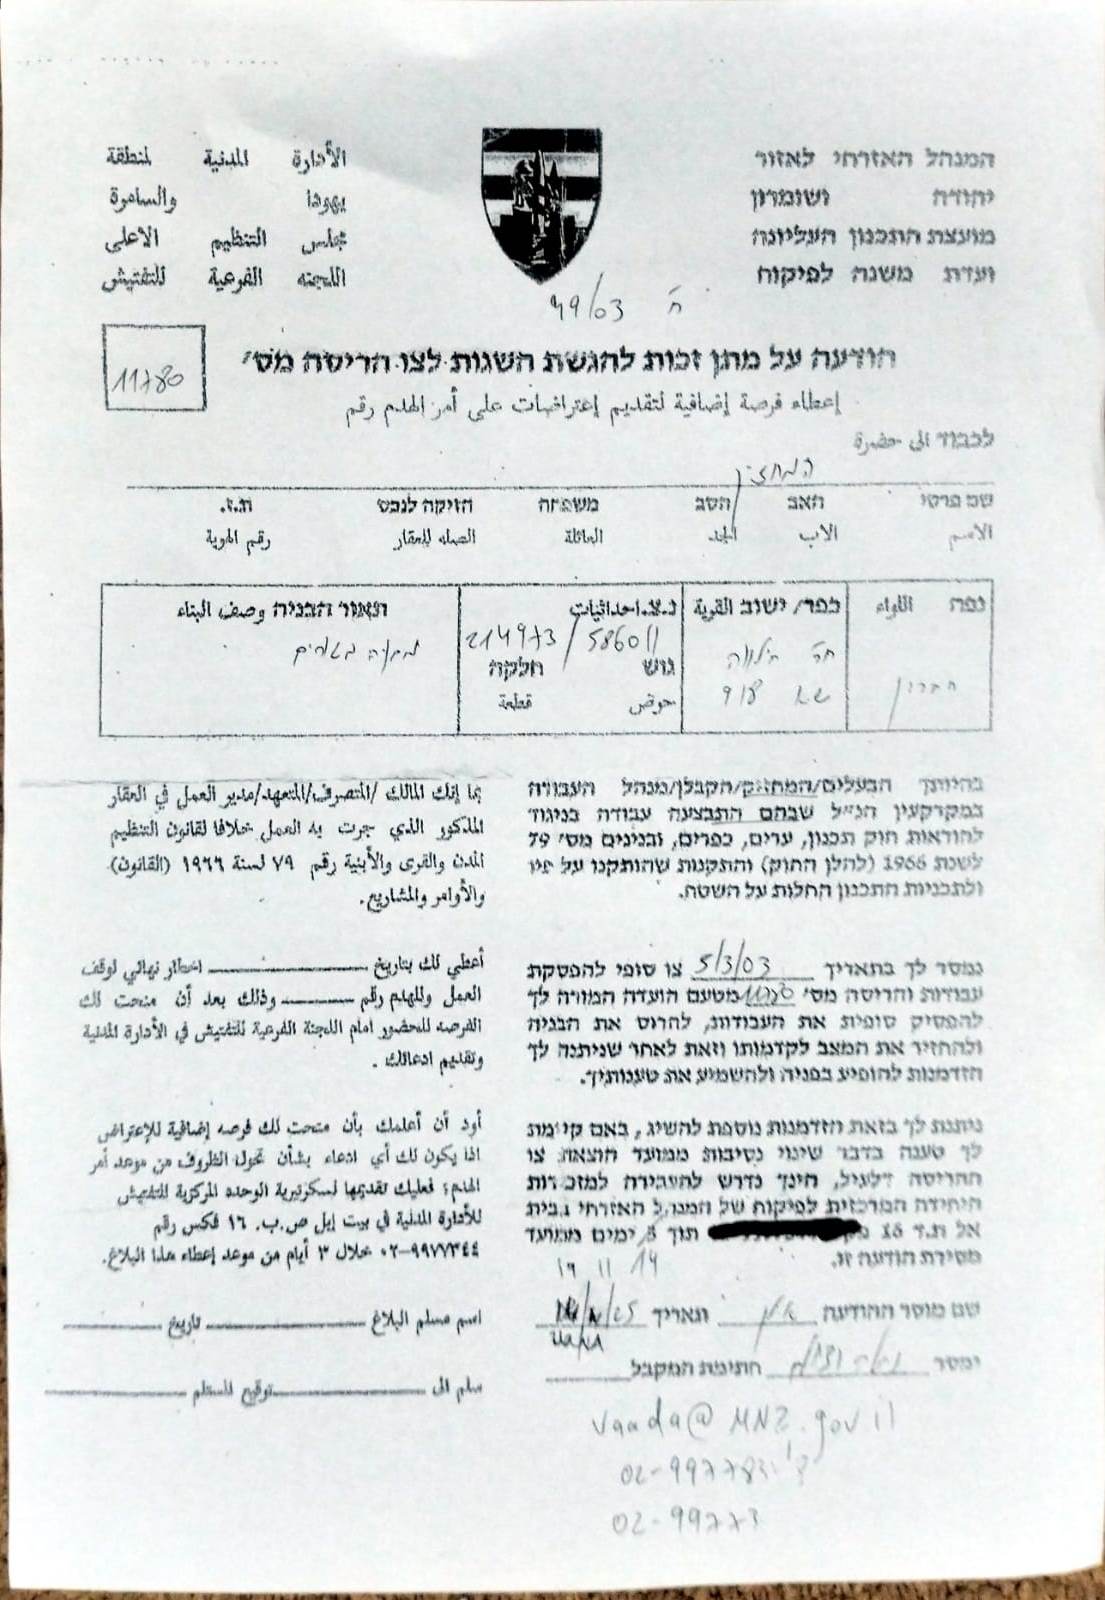 המנהל האזרחי לאזור
יהודה ושומרון
מועצת התכנון העליונה
ועדת משנה לפיקוח
الأدارة المدنية لمنطقة
يهودا والسامرة
مجلس التنظيم الاعلى
اللجنه الفرعية للتفتيش
ח 49/03
הודעה על מתן זכות להגשת השגות לצו הריסה מס׳
11780
إعطاء فرصة إضافية لتقديم إعتراضات على أمر الهدم رقم
לכבוד الى حضرة
המחזיק
שם פרטי האב הסב משפחה הזיקה לנכס ת.ז.
الاسم الاب الجد العائلة الصله للعقار رقم الهوية
נפה اللواء
חברון
כפר/ישוב القرية
נ.צ.احداثيات
214973/586011
גוש חלקה
حوض قطعة
תאור הבניה وصف البناء
בהיותך הבעלים/המחזיק/הקבלן/מנהל העבודה
במקרקעין הנ״ל שבהם התבצעה עבודה בניגוד
להוראות חוק תכנון, ערים, כפרים, ובנינים מס׳ 79
לשנת 1966 (להלן החוק) והתקנות שהותקנו על פיו
ולתכניות התכנון החלות על השטח.
بما إنك المالك/المتصرف/المتعهد/مدير العمل في العقار
المذكور الذي جرت به العمل خلافا لقانون التنظيم
المدن والقرى والأبنية رقم ٧٩ لسنة ١٩٦٦ (القانون)
والأوامر والمشاريع.
נמסר לך בתאריך 5/3/03 צו סופי להפסקת
עבודות והריסה מס׳ 11780 מטעם הועדה המורה לך
להפסיק סופית את העבודות, להרוס את הבניה
ולהחזיר את המצב לקדמותו וזאת לאחר שניתנה לך
הזדמנות להופיע בפניה ולהשמיע את טענותיך.
أعطي لك بتاريخ اخطار نهائي لوقف
العمل وللهدم رقم وذلك بعد أن منحت لك
الفرصه للحضور امام اللجنة الفرعية للتفتيش في الأدارة المدنية
وتقديم ادعائك.
ניתנת לך בזאת הזדמנות נוספת להשיג, באם קיימת
לך טענה בדבר שינוי נסיבות ממועד הוצאת צו
ההריסה דלעיל, הינך נדרש להעבירה למזכירות
היחידה המרכזית לפיקוח של המנהל האזרחי בבית
אל ת.ד 16 תוך 3 ימים ממועד
מסירת הודעה זו.
أود أن أعلمك بأن منحت لك فرصه إضافية للإعتراض
اذا يكون لك أي ادعاء بشأن تحول الظروف من موعد أمر
الهدم؛ فعليك تقديمها لسكرتيرية الوحده المركزية للتفتيش
للأدارة المدنية في بيت إيل ص.ب. ١٦ فكس رقم
٠٢-٩٩٧٧٣٤٤ خلال ٣ أيام من موعد إعطاء هذا البلاغ.
14 11 19
שם מוסר ההודעה תאריך
ימסר חתימת המקבל
اسم مسلم البلاغ تاريخ
سلم الى توقيع المستلم
02-99773